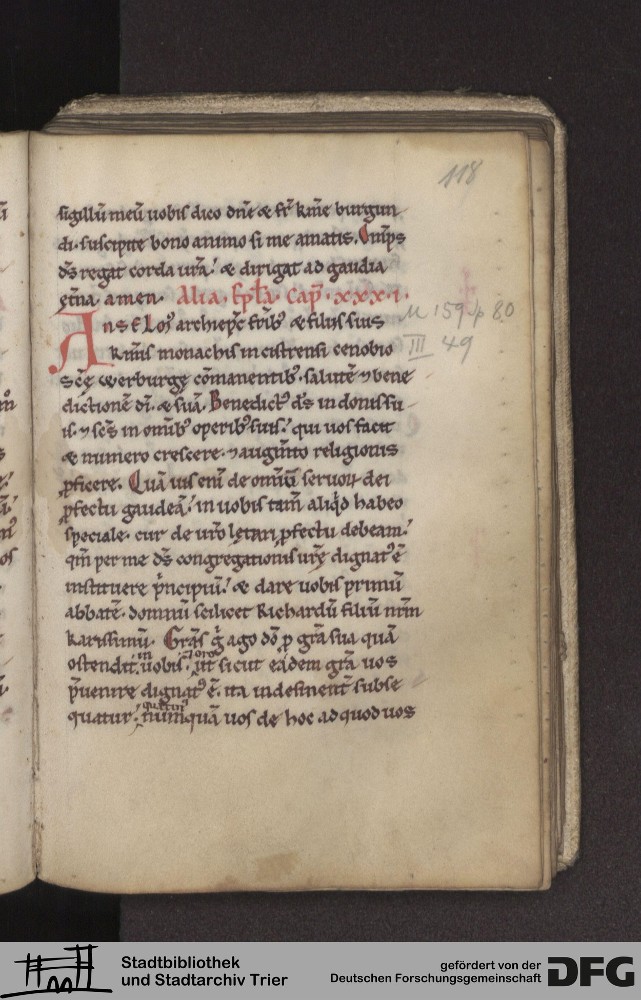 118
sigillū meū uobis dico dn̄e & fr̄ kr̄me burgun
di. suscipite bono animo si me amatis. Om̄ps
ds̄ regat corda ur̄a. & dirigat ad gaudia
et̄na. amen. Alia. Epl̄a. Cap̄. xxx.i.
M 159. p 80
Anselmꝰ archiep̄c fr̄ibꝰ & filiis suis
III 49
kr̄mis monachis in cistrensi cenobio
sc̄ę werburgę cōmanentibꝰ. salutē ⁊ bene
dictionē dī. & suā. Benedictꝰ ds̄ in donis su
is. ⁊ sc̄s in om̄ibꝰ operibꝰ suis. qui uos facit
& numero crescere. ⁊ augm̄to religionis
ꝓficere. Quāuis eni̅ de om̄iū seruoꝝ dei
ꝓfectu gaudeā. in uobis tam̄ aliqͥd habeo
speciale. cur de ur̄o lętari ꝓfectu debeam.
qm̄ per me ds̄ congregationis ur̄ę dignatꝰ ē
instituere pͥncipiū. & dare uobis primū
abbatē. domnū scilicet Richardū filiū nr̄m
karissimū. Gr̄as gͦ ago dō ꝓ gr̄a sua quā
ostendit in uobis. oro ut sicut eādem gr̄a uos
p̄uenire dignatꝰ ē. ita indesinent̄ subse
quatur. numquā uos de hoc ad quod uos
Stadtbibliothek
und Stadtarchiv Trier
gefördert von der
Deutschen Forschungsgemeinschaft
DFG